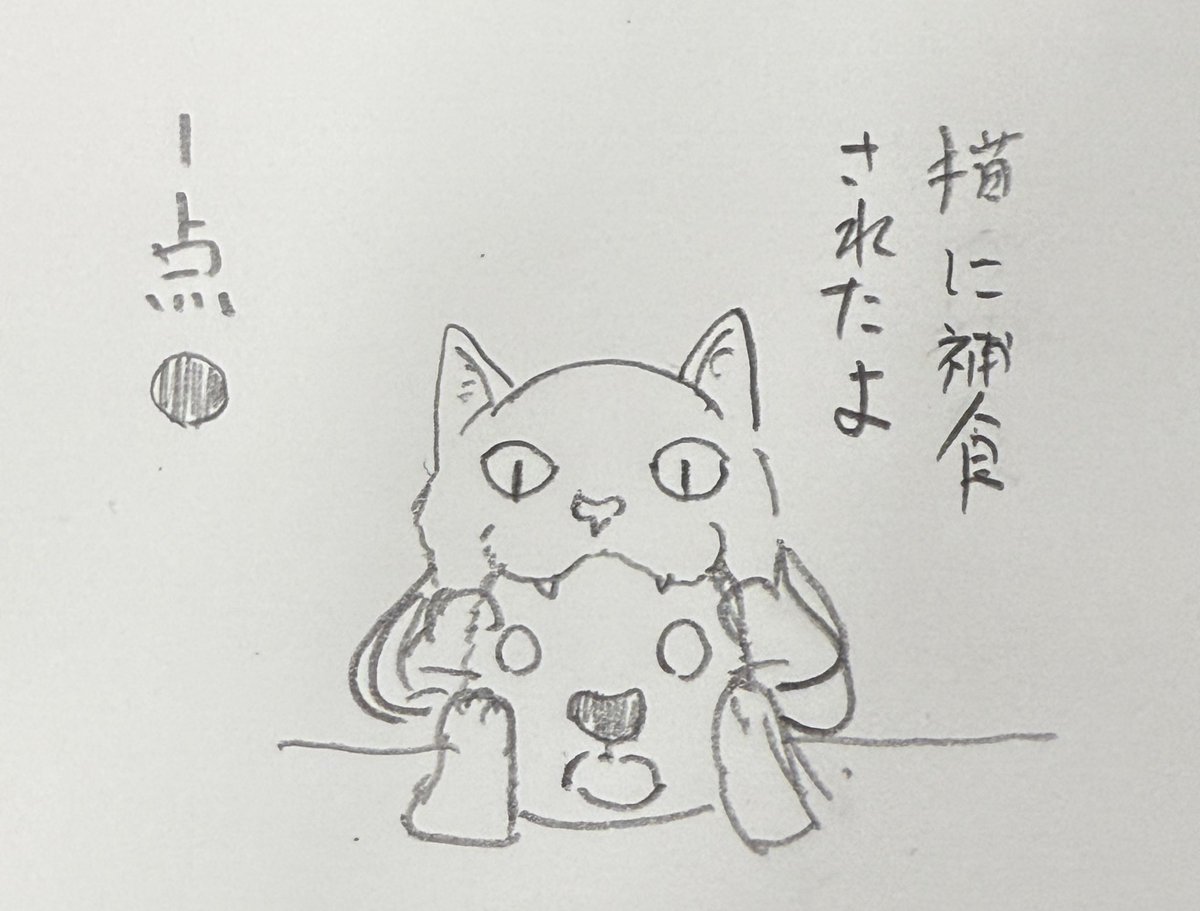 描に補食
されたよ
1点●